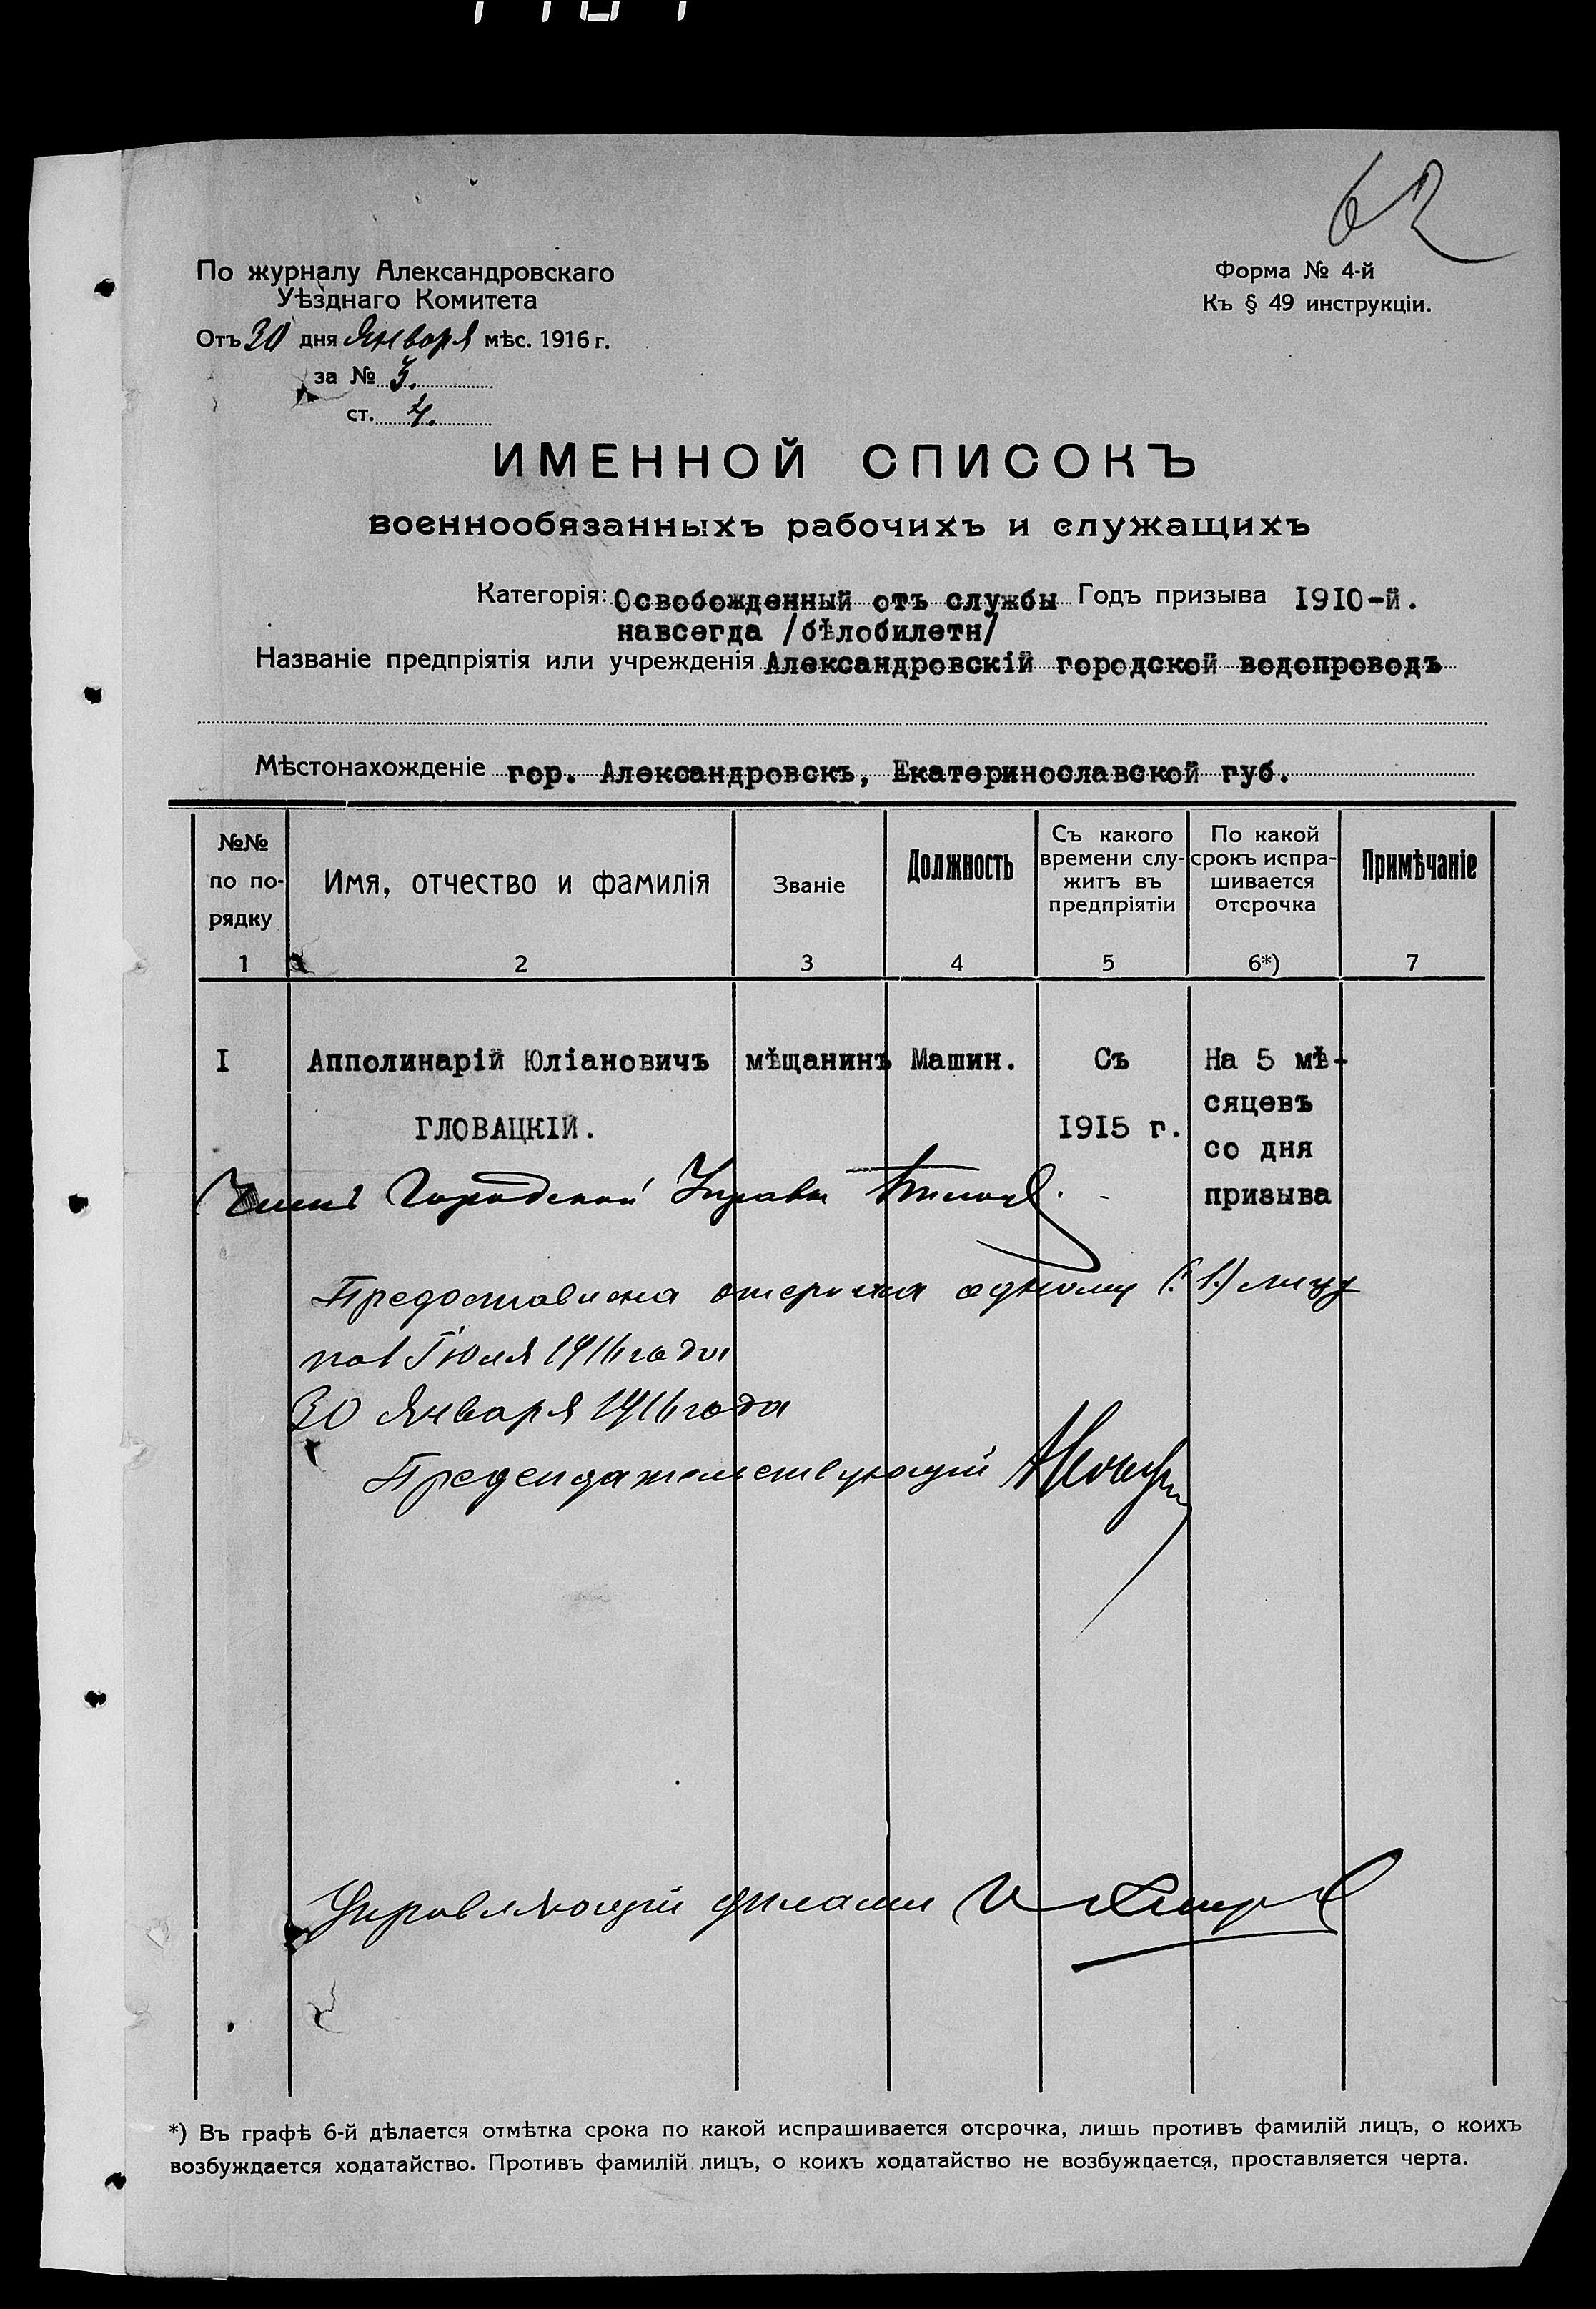 62
По журналу Александровскаго
Уѣзднаго Комитета
Отъ 30 дня Января мѣс. 1916 г.
за № 3.
ст. 4.
Форма № 4-й
Къ § 49 инструкціи.
ИМЕННОЙ СПИСОКЪ
военнообязанныхъ рабочихъ и служащихъ
Категорія: Освобожденный отъ службы Годъ призыва 1910-й.
навсегда /бѣлобилетн/
Названіе предпріятія или учрежденія Александровскій городской водопроводъ
Мѣстонахожденіе гор. Александровскъ, Екатеринославской губ.
№№ по по-рядку
Имя, отчество и фамилія
Званіе
Должность
Съ какого времени слу-житъ въ предпріятіи
По какой срокъ испра-шивается отсрочка
Примѣчаніе
1 2 3 4 5 6*) 7
I Апполинарій Юліановичъ мѣщанинъ Машин. Съ На 5 мѣ-
сяцевъ
ГЛОВАЦКІЙ. 1915 г.
со дня
призыва
Членъ Городской Управы
Предоставлена отсрочка одному (1.) лицу
по 1 Іюля 1916 года
30 Января 1916 года
Председательствующій
Управляющій делами
*) Въ графѣ 6-й дѣлается отмѣтка срока по какой испрашивается отсрочка, лишь противъ фамилій лицъ, о коихъ
возбуждается ходатайство. Противъ фамилій лицъ, о коихъ ходатайство не возбуждается, проставляется черта.